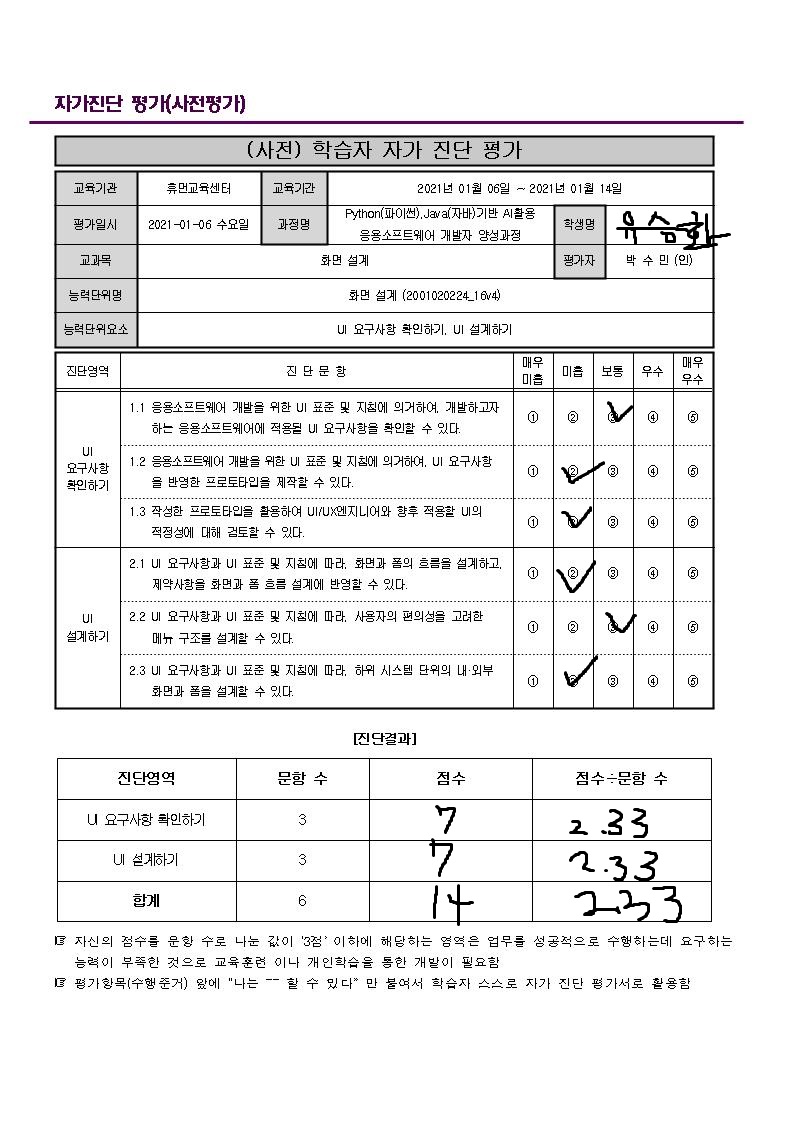 자가진단 평가(사전평가)
(사전) 학습자 자가 진단 평가
교육기관 휴먼교육센터 교육기간 2021년 01월 06일 ~ 2021년 01월 14일
평가일시 2021-01-06 수요일 과정명 Python(파이썬),Java(자바)기반 AI활용
응용소프트웨어 개발자 양성과정 학생명
교과목 화면 설계 평가자 박 수 민 (인)
능력단위명 화면 설계 (2001020224_16v4)
능력단위요소 UI 요구사항 확인하기, UI 설계하기
진단영역 진 단 문 항 매우 미흡 미흡 보통 우수 매우 우수
UI 요구사항 확인하기
1.1 응용소프트웨어 개발을 위한 UI 표준 및 지침에 의거하여, 개발하고자
하는 응용소프트웨어에 적용될 UI 요구사항을 확인할 수 있다. ① ② ③ ④ ⑤
1.2 응용소프트웨어 개발을 위한 UI 표준 및 지침에 의거하여, UI 요구사항
을 반영한 프로토타입을 제작할 수 있다. ① ② ③ ④ ⑤
1.3 작성한 프로토타입을 활용하여 UI/UX엔지니어와 향후 적용할 UI의
적정성에 대해 검토할 수 있다. ① ② ③ ④ ⑤
UI 설계하기
2.1 UI 요구사항과 UI 표준 및 지침에 따라, 화면과 폼의 흐름을 설계하고,
제약사항을 화면과 폼 흐름 설계에 반영할 수 있다. ① ② ③ ④ ⑤
2.2 UI 요구사항과 UI 표준 및 지침에 따라, 사용자의 편의성을 고려한
메뉴 구조를 설계할 수 있다. ① ② ③ ④ ⑤
2.3 UI 요구사항과 UI 표준 및 지침에 따라, 하위 시스템 단위의 내·외부
화면과 폼을 설계할 수 있다. ① ② ③ ④ ⑤
[진단결과]
진단영역 문항 수 점수 점수÷문항 수
UI 요구사항 확인하기 3 7 2.33
UI 설계하기 3 7 2.33
합계 6 14 2.33
☞ 자신의 점수를 문항 수로 나눈 값이 '3점' 이하에 해당하는 영역은 업무를 성공적으로 수행하는데 요구하는
능력이 부족한 것으로 교육훈련 이나 개인학습을 통한 개발이 필요함
☞ 평가항목(수행준거) 앞에 "나는 ~~ 할 수 있다" 만 붙여서 학습자 스스로 자가 진단 평가서로 활용함